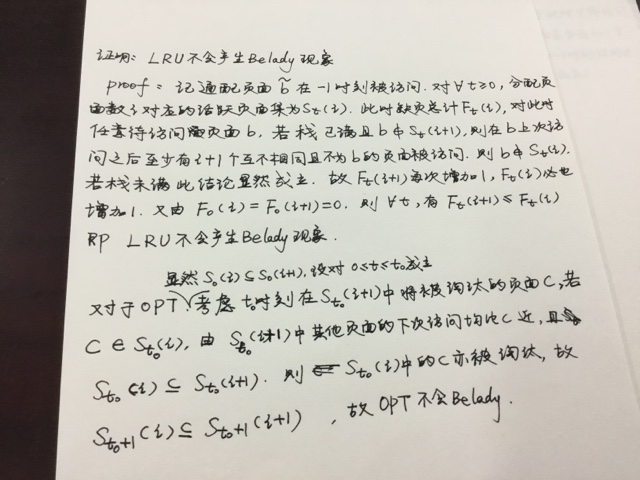 证明: LRU不会产生Belady现象
proof: 记通配页面 b̃ 在 -1时刻被访问. 对∀t≥0, 分配页
面数i对应的活跃页面集为St(i). 此时缺页总计Ft(i), 对此时
任意待访问页面b, 若栈已满且b∉St(i+1), 则在b上次访
问之后至少有i+1个互不相同且不为b的页面被访问. 则b∉St(i).
若栈未满此结论显然成立. 故Ft(i+1)每次增加1, Ft(i)必也
增加1. 又由F₀(i)=F₀(i+1)=0. 则∀t, 有Ft(i+1)≤Ft(i)
即 LRU不会产生Belady现象.
显然S₀(i)⊆S₀(i+1), 设对0≤t≤t₀成立
又对于OPT, 考虑t₀时刻在St₀(i+1)中将被淘汰的页面C, 若
C∈St₀(i), 由St₀(i+1)中其他页面的下次访问均比C近, 且
St₀(i)⊆St₀(i+1). 则St₀(i)中的C亦被淘汰, 故
St₀+1(i)⊆St₀+1(i+1), 故OPT不会Belady.